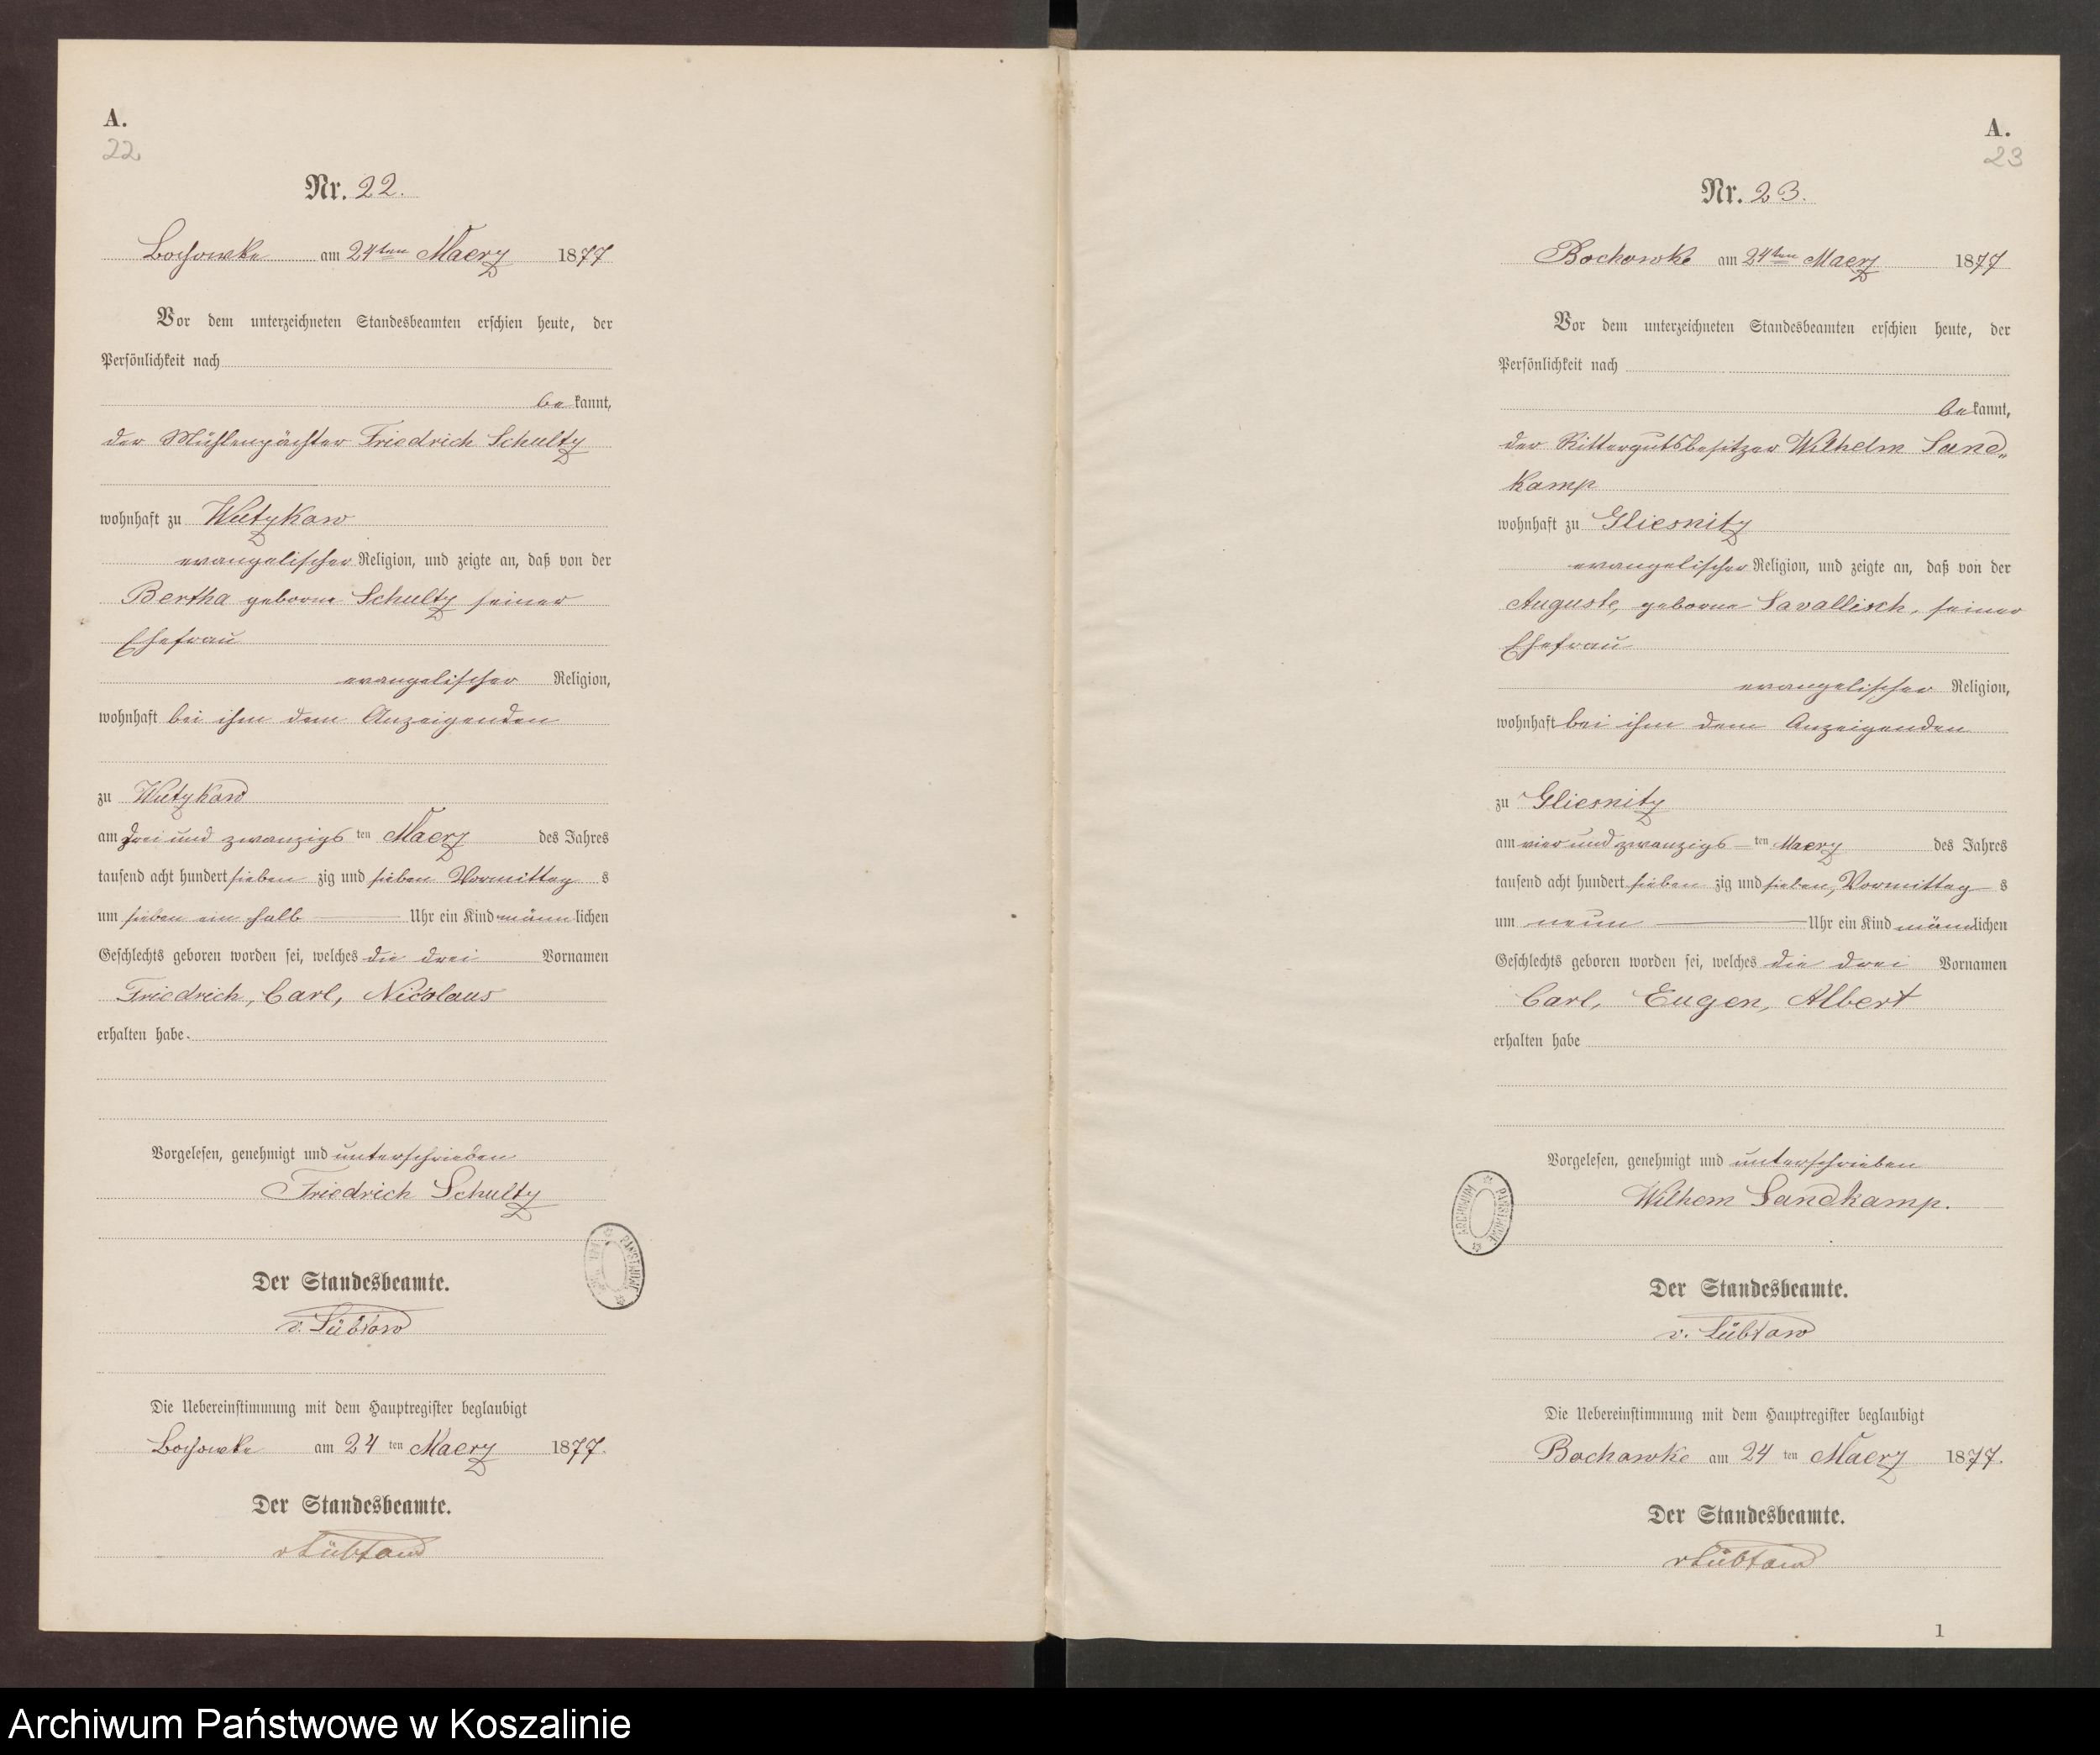 A.
22
Nr. 22.
Bochowke am 24ten Maerz 1877
Vor dem unterzeichneten Standesbeamten erschien heute, der
Persönlichkeit nach
be kannt,
der Mühlenpächter Friedrich Schultz
wohnhaft zu Wutzkow
evangelischer Religion, und zeigte an, daß von der
Bertha geborne Schultz seiner
Ehefrau
evangelischer Religion,
wohnhaft bei ihm dem Anzeigenden
zu Wutzkow
am drei und zwanzigs ten Maerz des Jahres
tausend acht hundert sieben zig und sieben Vormittag s
um sieben ein halb Uhr ein Kind männ lichen
Geschlechts geboren worden sei, welches die drei Vornamen
Friedrich, Carl, Nicolaus
erhalten habe.
Vorgelesen, genehmigt und unterschrieben
Friedrich Schultz
Der Standesbeamte.
v. Lübtow
Die Uebereinstimmung mit dem Hauptregister beglaubigt
Bochowke am 24 ten Maerz 1877.
Der Standesbeamte.
vLübtow
A.
23
Nr. 23.
Bochowke am 24ten Maerz 1877
Vor dem unterzeichneten Standesbeamten erschien heute, der
Persönlichkeit nach
be kannt,
der Rittergutsbesitzer Wilhelm Sand„
kamp
wohnhaft zu Gliesnitz
evangelischer Religion, und zeigte an, daß von der
Auguste, geborne Savallisch, seiner
Ehefrau
evangelischer Religion,
wohnhaft bei ihm dem Anzeigenden
zu Gliesnitz
am vier und zwanzigs ten Maerz des Jahres
tausend acht hundert sieben zig und sieben, Vormittag s
um neun Uhr ein Kind männ lichen
Geschlechts geboren worden sei, welches die drei Vornamen
Carl, Eugen, Albert
erhalten habe
Vorgelesen, genehmigt und unterschrieben
Wilhem Sandkamp.
ARCHIWUM PAŃSTWOWE
Der Standesbeamte.
v. Lübtow
Die Uebereinstimmung mit dem Hauptregister beglaubigt
Bochowke am 24 ten Maerz 1877.
Der Standesbeamte.
vLübtow
1
Archiwum Państwowe w Koszalinie